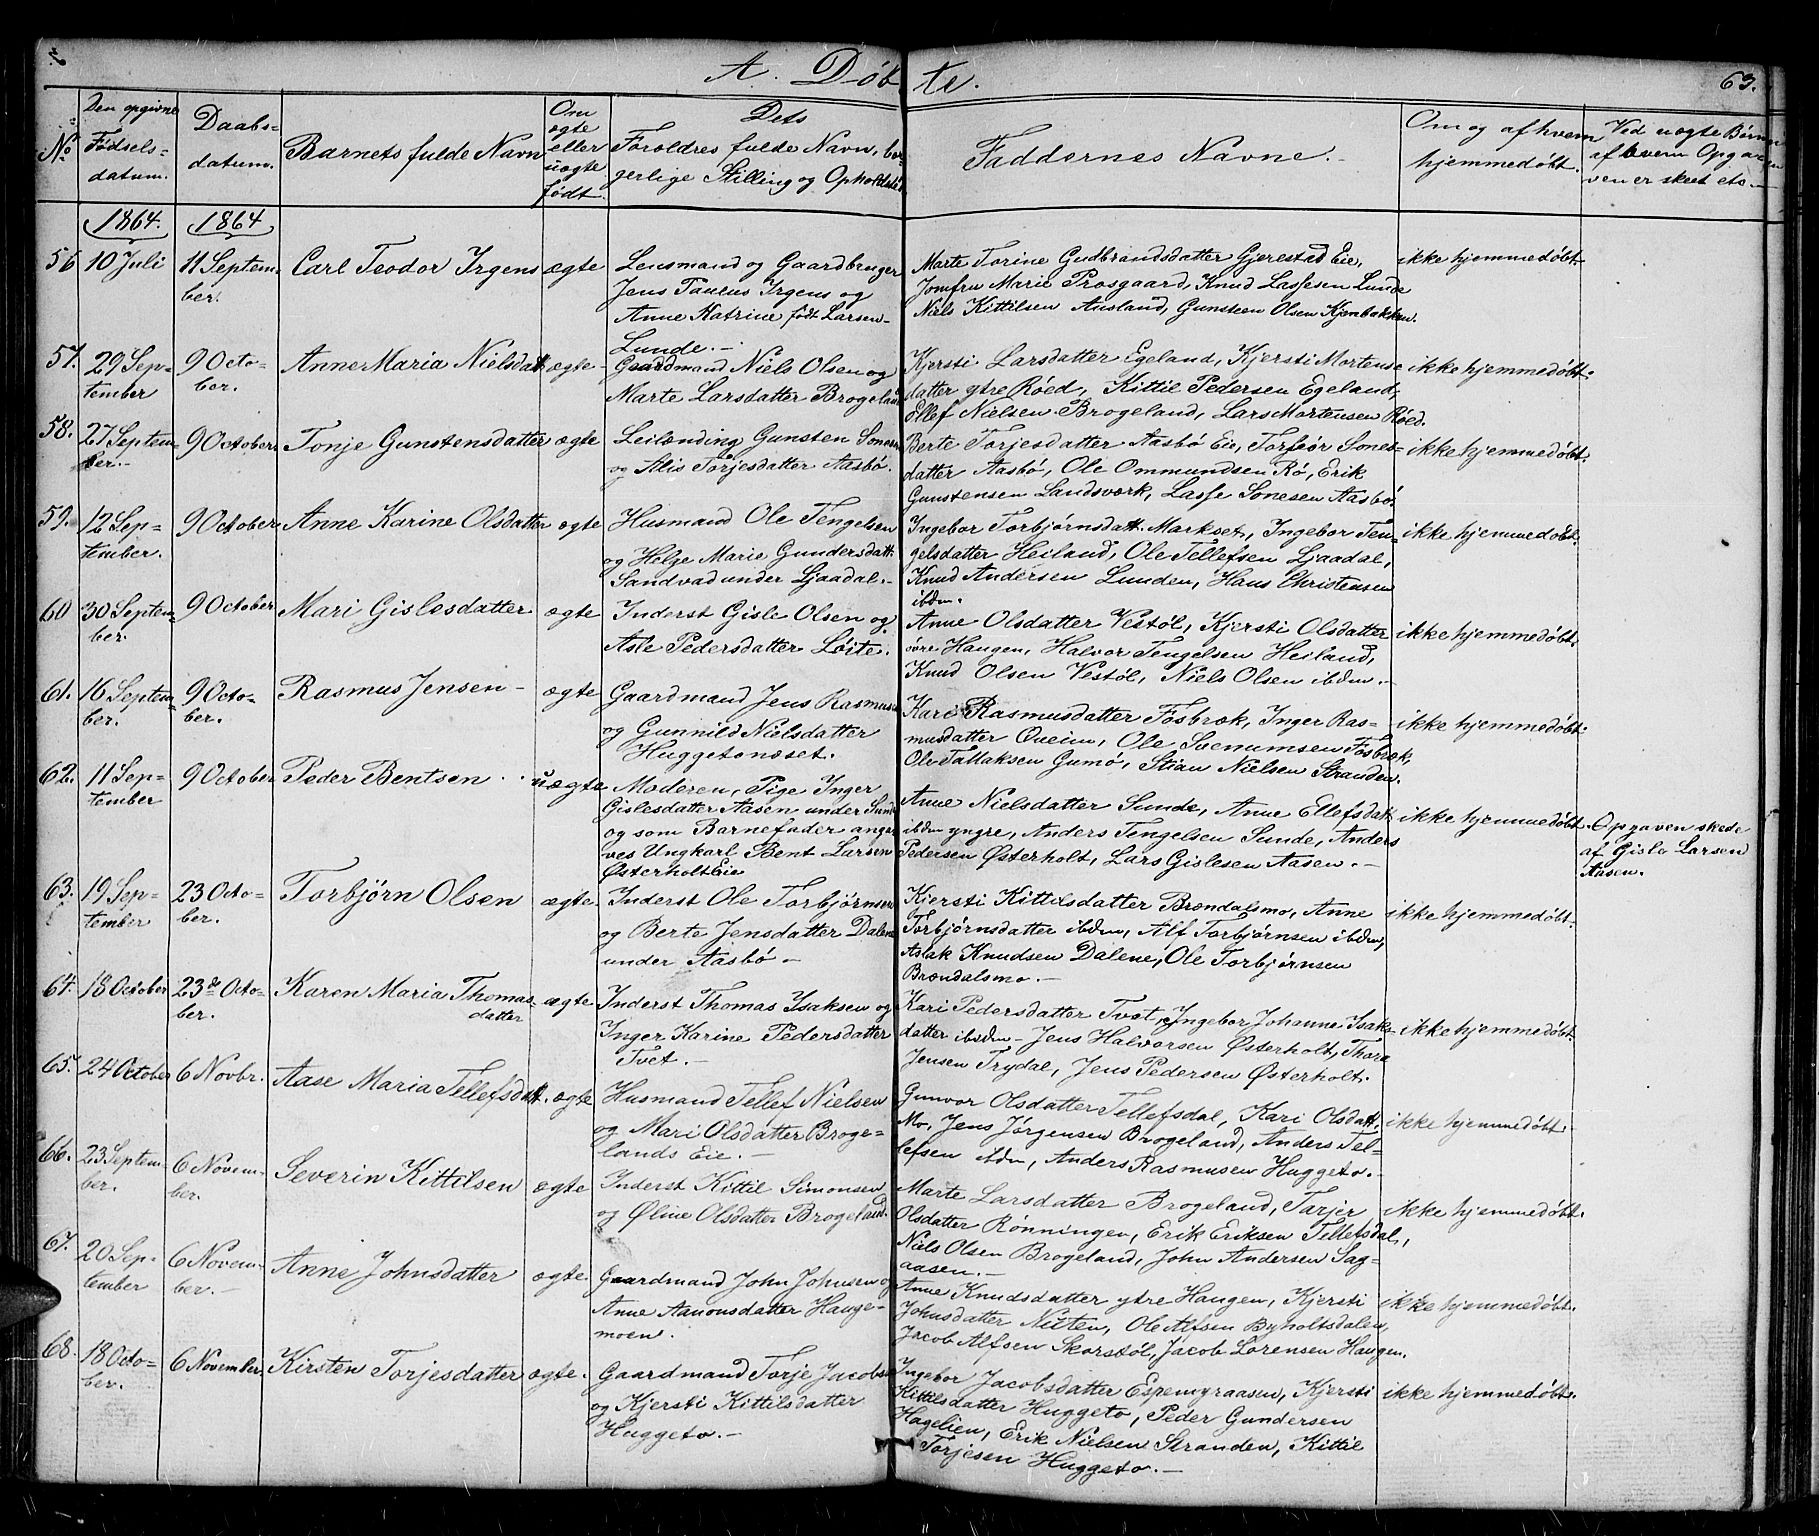 A. Døbte.
63.
No
Den opgivne
Fødsels=
datum.
Daabs=
datum.
Barnets fulde Navn
Om
ægte
eller
uægte
født.
Dets
Foroldres fulde Navn, bor
gerlige Stilling og Opholdsted
Faddernes Navne.
Om og af hvem
hjemmedøbt.
Ved uægte Børn
af hvem Opga
ven er skeet etc.
1864. 1864
56 10 Juli 11 Septem= Carl Teodor Irgens ægte
ber.
Lensmand og Gaardbruger
Jens Paulus Irgens og
Anne Katrine født Larsen
Lunde.
Marte Torine Gudbrandsdatter Gjerestad Eie,
Jomfru Marie Prosgaard, Knud Lassesen Lunde
Niels Kittilsen Ausland, Gunsteen Olsen Kjenbakken.
ikke hjemmedøbt.
57. 29 Sep= 9 Octo= Anne Maria Nielsdatt ægte
tember ber.
Gaardmand Niels Olsen og
Marte Larsdatter Brogeland
Kjersti Larsdatter Egeland, Kjersti Mortens=
datter ytre Røed, Kittil Pedersen Egeland,
Ellef Nielsen Brogeland, Lars Mortensen Røed.
ikke hjemmedøbt.
58. 27 Septem= 9 October Tonje Gunstensdatter ægte
ber.
Leilænding Gunsten Sonesen
og Alis Torjesdatter Aasbø.
Berte Torjesdatter Aasbø Eie, Torbør Sones=
datter Aasbø, Ole Ommundsen Rø, Erik
Gunstensen Landsværk, Lasse Sonesen Aasbø.
ikke hjemmedøbt.
59. 12 Sep= 9 October Anne Karine Olsdatter ægte
tember.
Husmand Ole Tengelsen
og Helge Marie Gundersdatt
Sandvad under Ljaadal.
Ingebor Torbjørnsdatt. Markset, Ingebor Ten=
gelsdatter Heiland, Ole Tellefsen Ljaadal,
Knud Andersen Lunden, Hans Christensen
ibdm.
ikke hjemmedøbt.
60 30 Septem= 9 October Mari Gislesdatter. ægte
ber.
Inderst Gisle Olsen og
Asle Pedersdatter Løite.
Anne Olsdatter Vestøl, Kjersti Olsdatter
øvre Haugen, Halvor Tengelsen Heiland,
Knud Olsen Vestøl, Niels Olsen ibdm.
ikke hjemmedøbt.
61. 16 Septem= 9 Octo= Rasmus Jensen ægte
ber. ber.
Gaardmand Jens Rasmusen
og Gunnild Nielsdatter
Huggetonæset.
Kari Rasmusdatter Fosbræk, Inger Ras=
musdatter Qveim, Ole Svenumsen Fosbræk,
Ole Tallaksen Gumø, Stian Nielsen Stranden.
ikke hjemmedøbt.
62. 11 Sep= 9 October Peder Bentsen uægte
tember
Moderen, Pige Inger
Gislesdatter Aasen under Sunde
og som Barnefader angi
ves Ungkarl Bent Larsen
Østerholt Eie
Anne Nielsdatter Sunde, Anne Ellefsdatt
ibdm yngre, Anders Tengelsen Sunde, Anders
Pedersen Østerholt, Lars Gislesen Aasen.
ikke hjemmedøbt.
Opgaven skede
af Gisle Larsen
Aasen.
63. 19 Sep= 23 Octo= Torbjørn Olsen ægte.
tember ber.
Inderst Ole Torbjørnsen
og Berte Jensdatter Dalene
under Aasbø
Kjersti Kittilsdatter Brændalsmo, Anne
Torbjørnsdatter ibdm, Alf Torbjørnsen ibdm,
Aslak Knudsen Dalene, Ole Torbjørnsen
Brændalsmo.
ikke hjemmedøbt.
64. 18 October 23de Octo= Karen Maria Thomas= ægte
ber. datter
Inderst Thomas Isaksen og
Inger Karine Pedersdatter
Tvet.
Kari Pedersdatter Tvet, Ingebor Johanne Isaks=
datter ibdm Jens Halvorsen Østerholt, Thora
Jensen Trydal, Jens Pedersen Østerholt.
ikke hjemmedøbt.
65. 24 October 6 Novbr. Aase Maria Tellefsdatt. ægte
Husmand Tellef Nielsen
og Mari Olsdatter Broge=
lands Eie.
Gunvor Olsdatter Tellefsdal, Kari Olsdatt.
Mo, Jens Jørgensen Brogeland, Anders Tel=
lefsen ibdm, Anders Rasmusen Huggeto.
ikke hjemmedøbt.
66. 23 Septem= 6 Novem= Severin Kittilsen ægte
ber. ber.
Inderst Kittil Simonsen
og Øline Olsdatter Brogeland.
Marte Larsdatter Brogeland, Tarjer
Olsdatter Rønningen, Erik Eriksen Tellefsdal,
Niels Olsen Brogeland, John Andersen Sag=
aasen.
ikke hjemmedøbt.
67. 20 Sep= 6 Novem= Anne Johnsdatter ægte.
tember ber.
Gaardmand John Johnsen og
Anne Aanonsdatter Hauge=
moen.
Anne Knudsdatter ytre Haugen, Kjersti
Johnsdatter Nilten, Ole Alfsen Byholtsdalen,
Jacob Alfsen Skorstøl, Jacob Lorensen Haugen.
ikke hjemmedøbt.
68. 18 Octo= 6 November. Kirsten Torjesdatter ægte.
ber.
Gaardmand Torje Jacobsen
og Kjersti Kittilsdatter
Huggeto.
Ingebor Jacobsdatter Espemyraasen, Kjersti
Kittilsdatter Huggeto, Peder Gundersen
Hagelien, Erik Nielsen Stranden, Kittil
Torjesen Huggeto.
ikke hjemmedøbt.